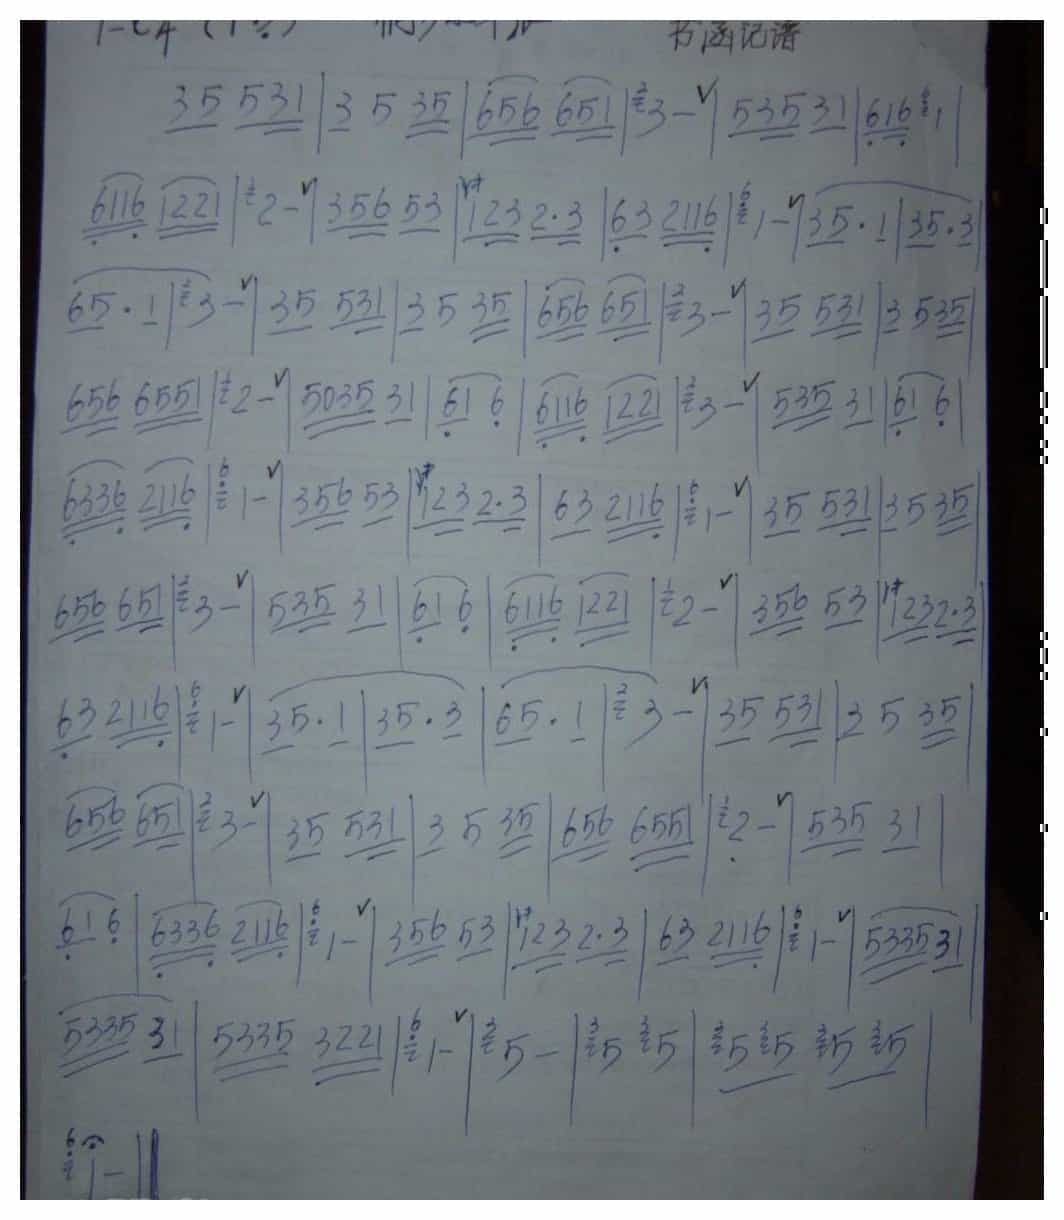 书涵记谱
35 531 | 3 5 35 | 656 651 | 3 - | 535 31 | 616 1 |
6116 1221 | 2 - | 356 53 | 123 2·3 | 63 2116 | 1 - | 35·1 | 35·3 |
65·1 | 3 - | 35 531 | 3 5 35 | 656 651 | 3 - | 35 531 | 3 535 |
656 6551 | 2 - | 5035 31 | 61 6 | 6116 1221 | 3 - | 535 31 | 61 6 |
6336 2116 | 1 - | 356 53 | 123 2·3 | 63 2116 | 1 - | 35 531 | 3 5 35 |
656 651 | 3 - | 535 31 | 61 6 | 6116 1221 | 2 - | 356 53 | 123 2·3 |
63 2116 | 1 - | 35·1 | 35·3 | 65·1 | 3 - | 35 531 | 3 5 35 |
656 651 | 3 - | 35 531 | 3 5 35 | 656 6551 | 2 - | 535 31 |
61 6 | 6336 2116 | 1 - | 356 53 | 123 2·3 | 63 2116 | 1 - | 5335 31 |
5335 31 | 5335 3221 | 1 - | 5 - | 5 5 | 5 5 5 5 |
1 - ||